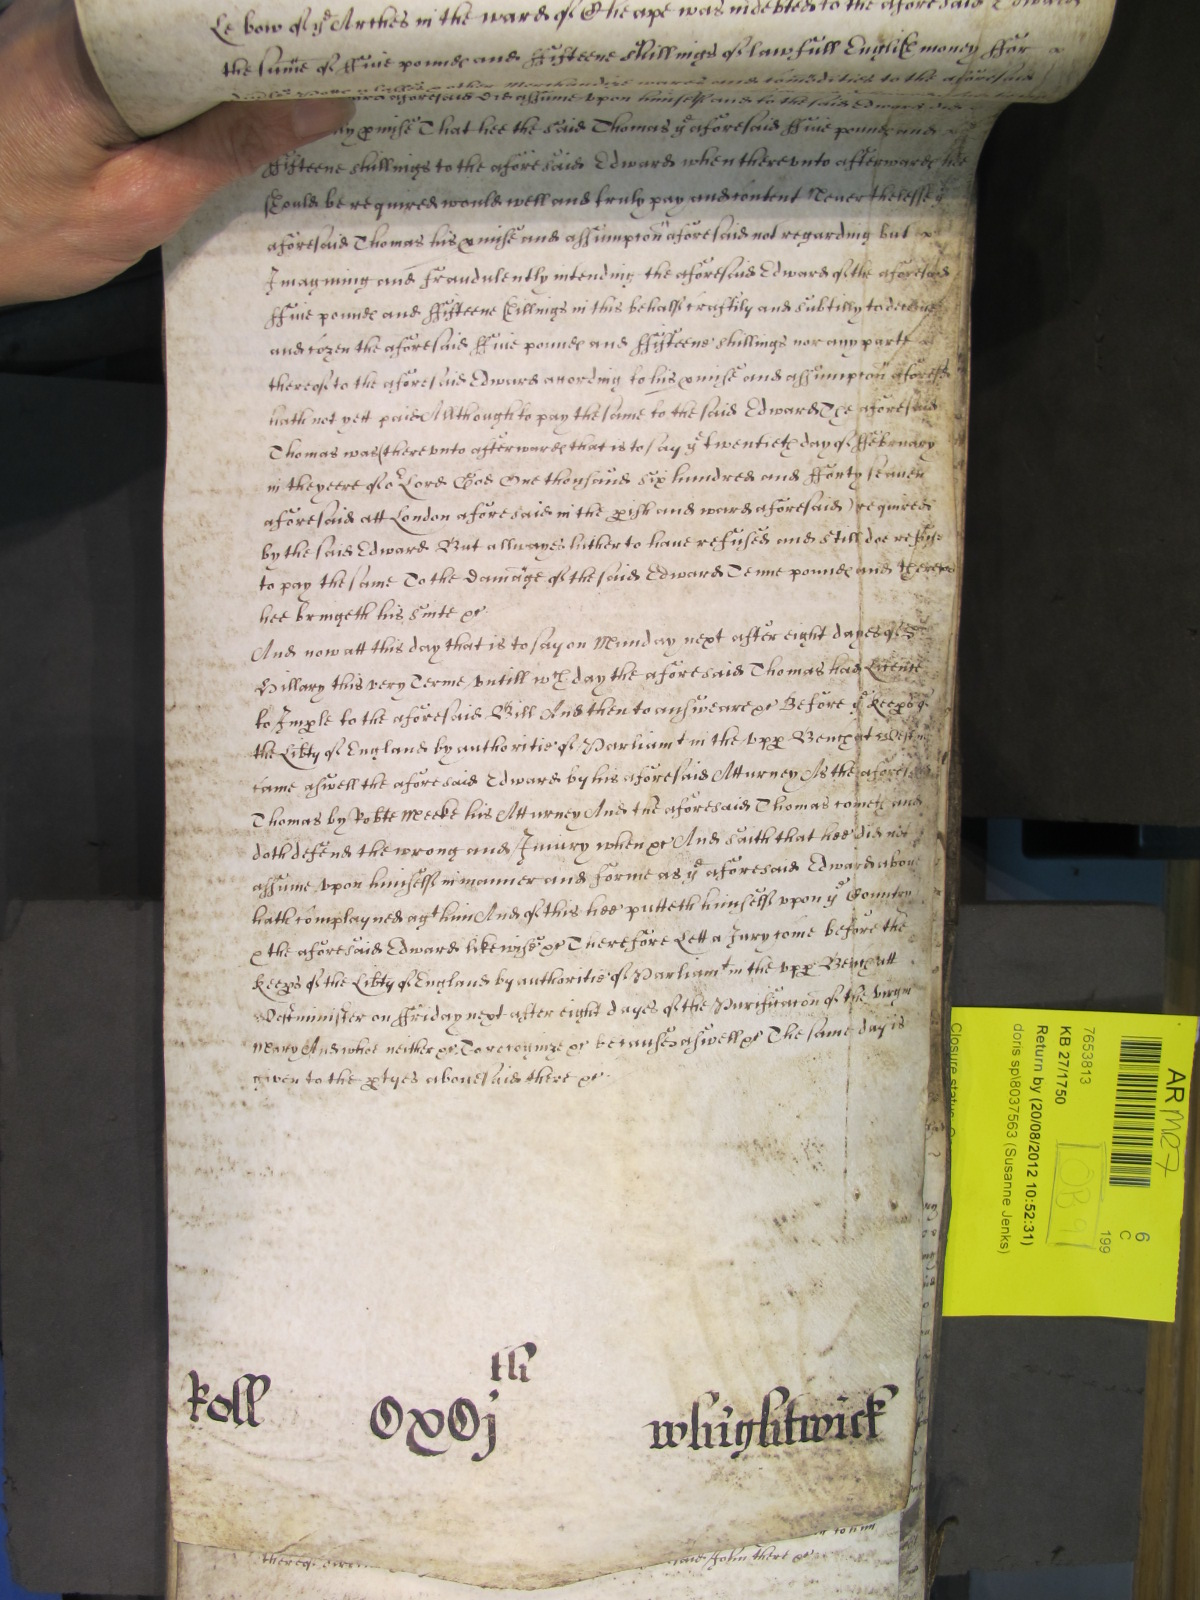 Le bow of ye Arches in the ward of Cheape was indebted to the aforesaid Edward
the sume of ffiue pounds and ffifteene Shillings of lawfull English money ffor
other Merchandize wares and comodities to the aforesaid
aforesaid did assume vpon himself and to the said Edward did
pmise That hee the said Thomas ye aforesaid ffiue pounds and
ffifteene shillings to the aforesaid Edward when therevnto afterwards hee
should be required would well and truly pay and content Neuerthelesse ye
aforesaid Thomas his pmise and assumpcon aforesaid not regarding but
Imagining and fraudulently intending the aforesaid Edward of the aforesaid
ffiue pounds and ffifteene shillings in this behalf craftily and subtilly to deceiue
and cozen the aforesaid ffiue pounds and ffifteene shillings nor any parte
thereof to the aforesaid Edward according to his pmise and assumpcon aforesd
hath not yett paid Allthough to pay the same to the said Edward The aforesaid
Thomas was (therevnto afterwards that is to say ye twentieth day of ffebruary
in the yeere of or Lord God One thousand six hundred and ffourty seauen
aforesaid att London aforesaid in the pish and ward aforesaid) required
by the said Edward But allwayes hitherto haue refused and still doe refuse
to pay the same To the damage of the said Edward Tenne pounds and thereof
hee bringeth his suite &c
And now att this day that is to say on Munday next after eight dayes of St
Hillary this very Terme vntill wch day the aforesaid Thomas had Licence
to Imple to the aforesaid Bill And then to answeare &c Before ye Keeps of
the Libty of England by authoritie of Parliamt in the vpp Bench at Westmr
came aswell the aforesaid Edward by his aforesaid Atturney As the aforesd
Thomas by Robte Meeke his Atturney And the aforesaid Thomas cometh and
doth defend the wrong and Iniury when &c And saith that hee did not
assume vpon himself in manner and forme as ye aforesaid Edward aboue
hath complayned agt him And of this hee putteth himself vpon ye Countrey
& the aforesaid Edward likewise &c Therefore Lett a Jury come before the
Keeps of the Libty of England by authoritie of Parliamt in the vpp Bench att
Westminster on ffriday next after eight dayes of the Purificacon of the virgin
Mary And whoe neither &c To recognize &c because aswell &c The same day is
giuen to the ptyes abouesaid there &c
Roll
CxCj th
Whightwick
thereof
John there &c
AR MR7
6
C
199
7653813
KB 27/1750
OB 91
Return by (20/08/2012 10:52:31)
doris sp\8037563 (Susanne Jenks)
Closure status: